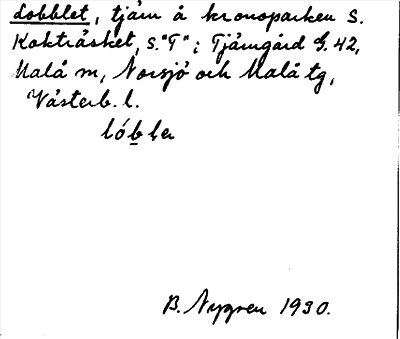 Lobblet, tjärn å kronoparken S.
Kokträsket, S. "T"; Tjärngård G. 42,
Malå m, Norsjö och Malå tg,
Västerb. l.
lóbḷer
B. Nygren 1930.